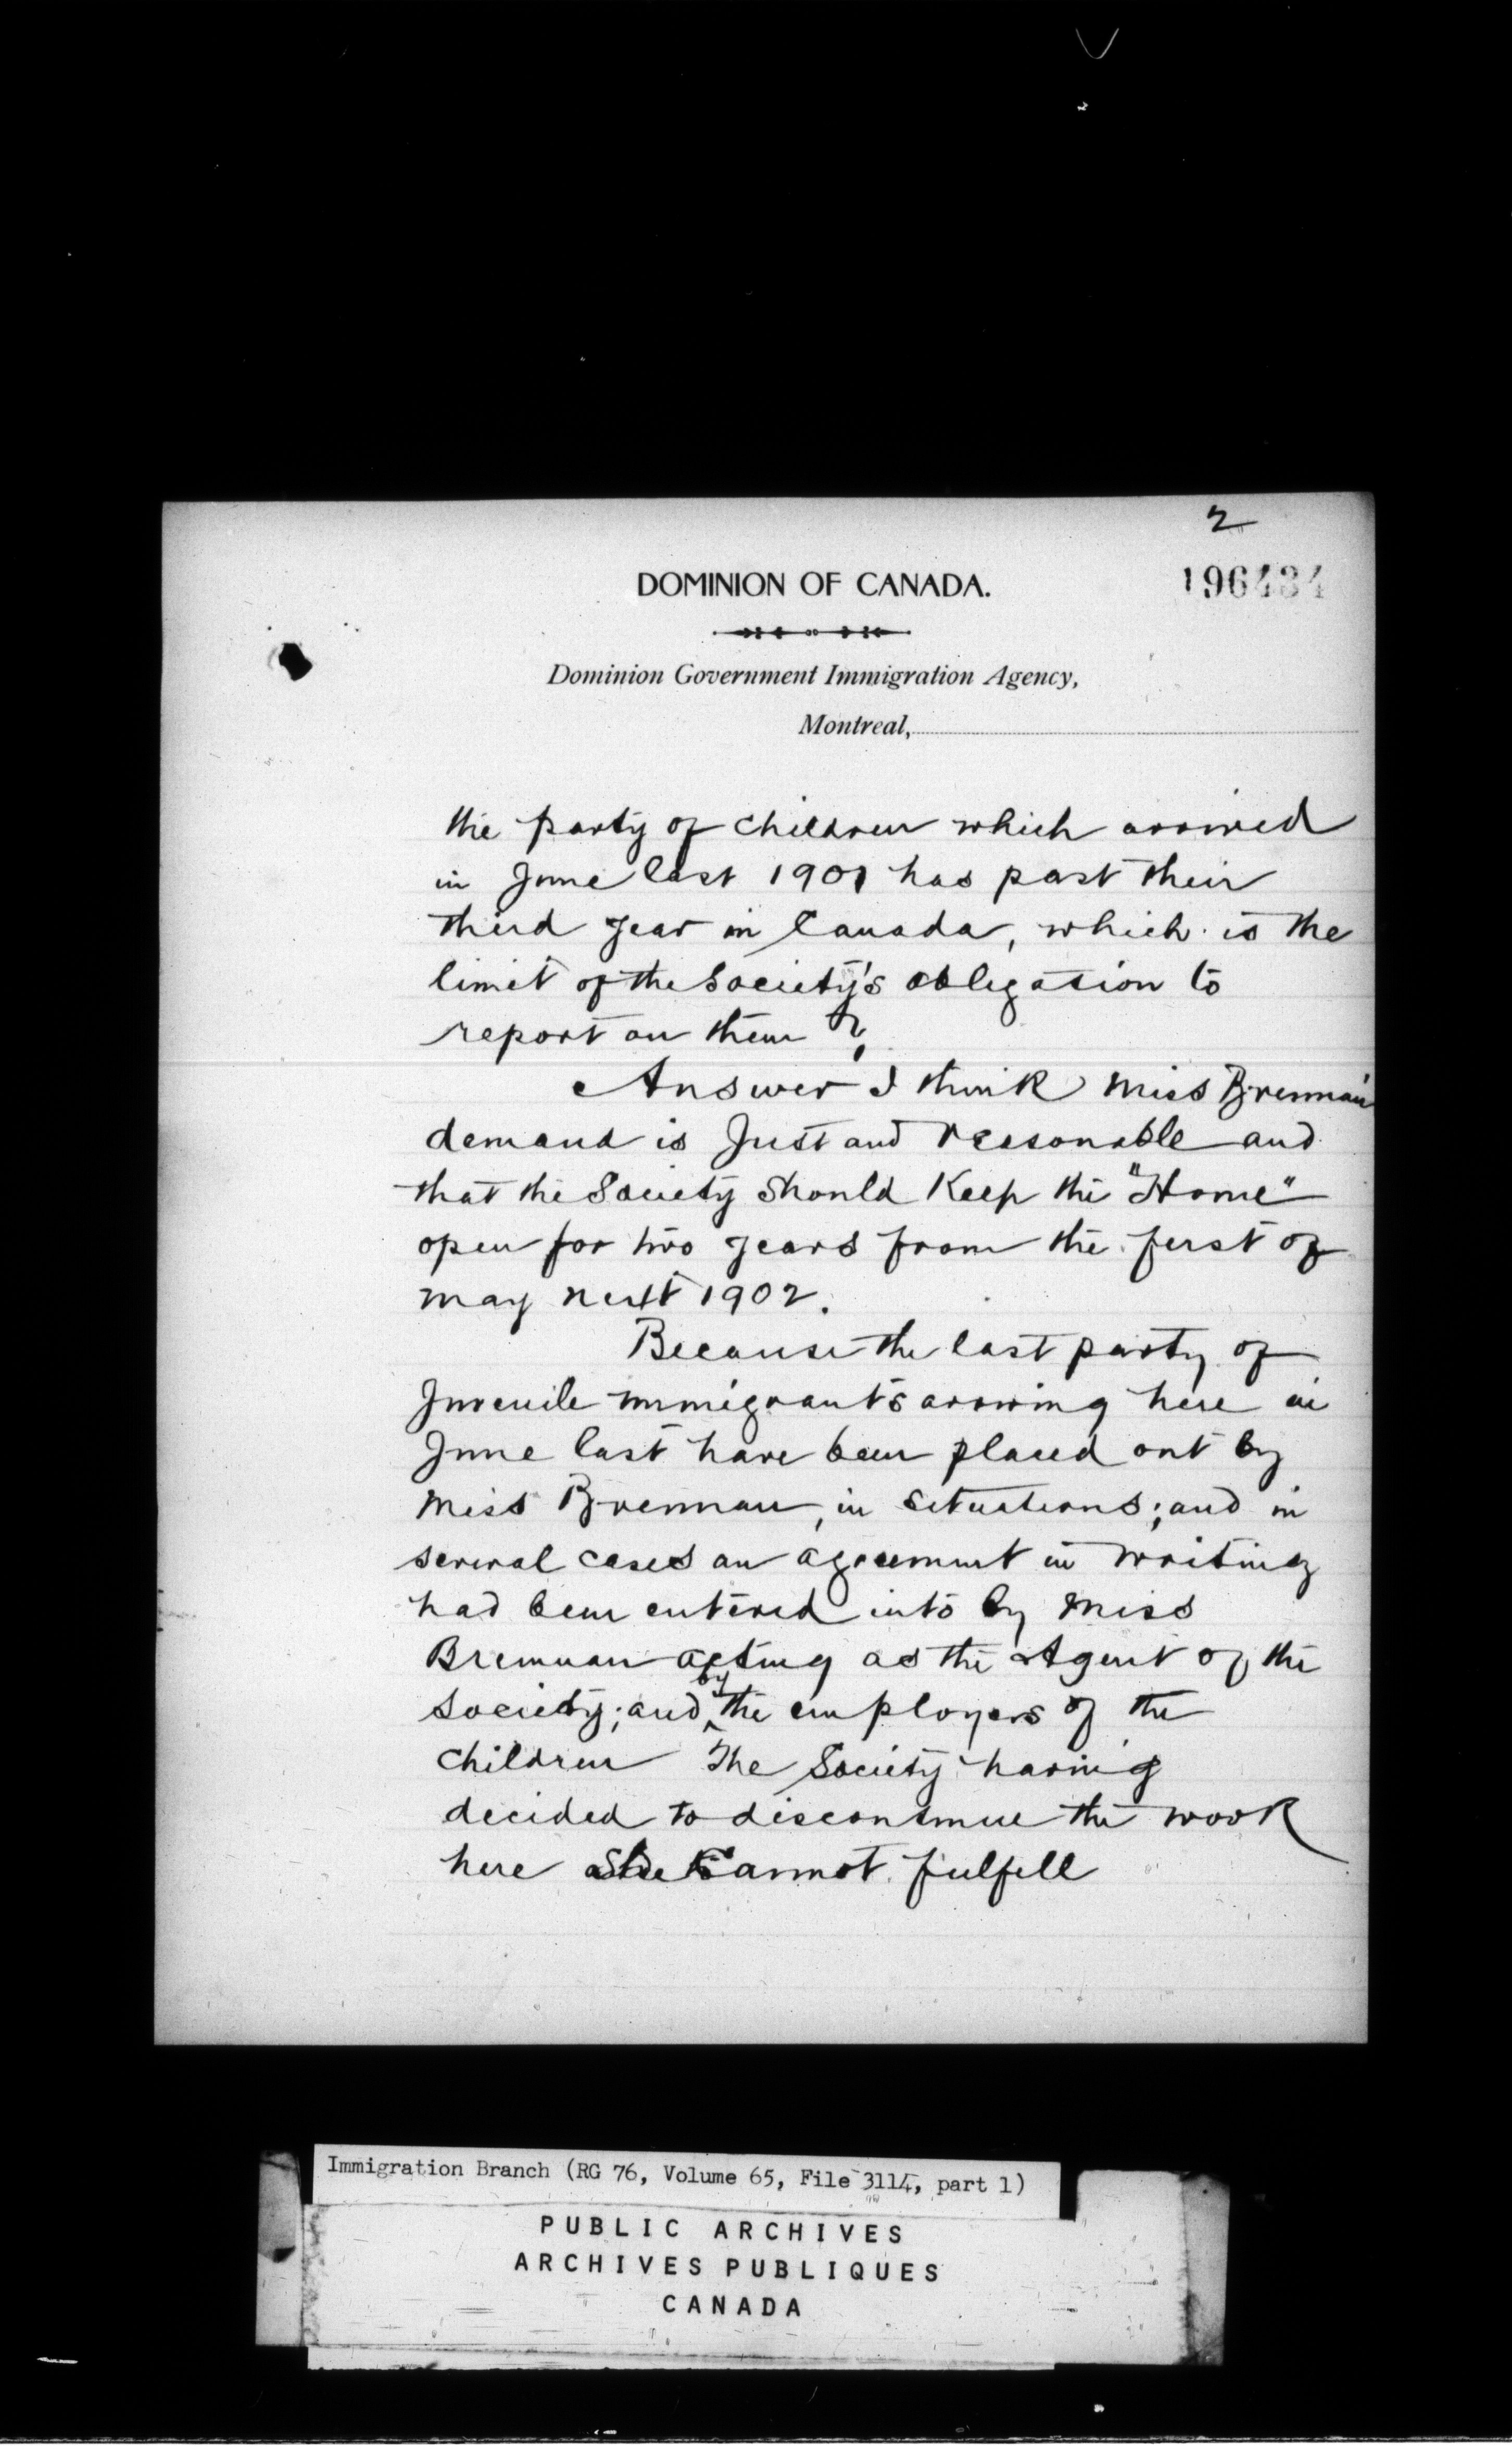 2
DOMINION OF CANADA.
196434
Dominion Government Immigration Agency,
Montreal,
the party of children which arrived
in June last 1901 has past their
third year in Canada, which is the
limit of the Society's obligation to
report on them?
Answer I think Miss Brennan
demand is Just and reasonable and
that the Society Should Keep the "Home"
open for two years from the first of
May next 1902.
Because the last party of
Juvenile immigrants arriving here in
June last have been placed out by
Miss Brennan, in situations; and in
several cases an agreement in writing
had been entered into by Miss
Brennan acting as the Agent of the
Society; and by the employers of the
children The Society having
decided to discontinue the work
here She Cannot fulfill
Immigration Branch (RG 76, Volume 65, File 3114, part 1)
PUBLIC ARCHIVES
ARCHIVES PUBLIQUES
CANADA